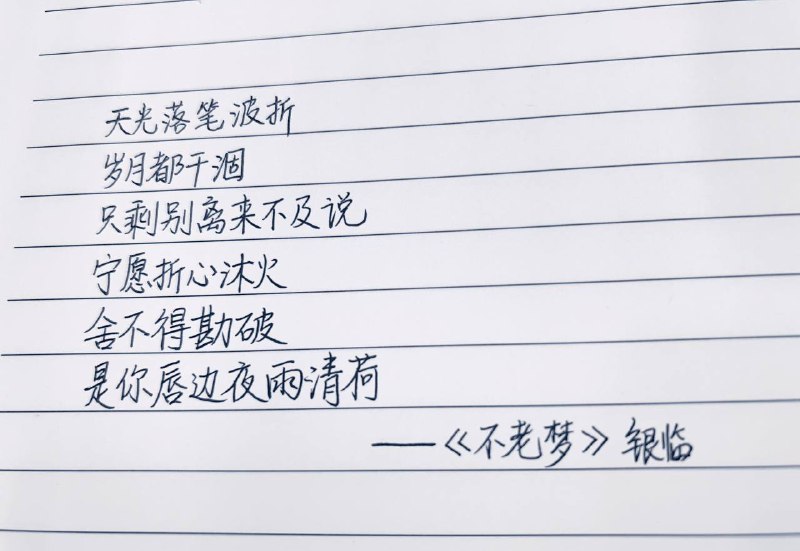 天光落笔波折
岁月都干涸
只剩别离来不及说
宁愿折心沐火
舍不得勘破
是你唇边夜雨清荷
——《不老梦》银临